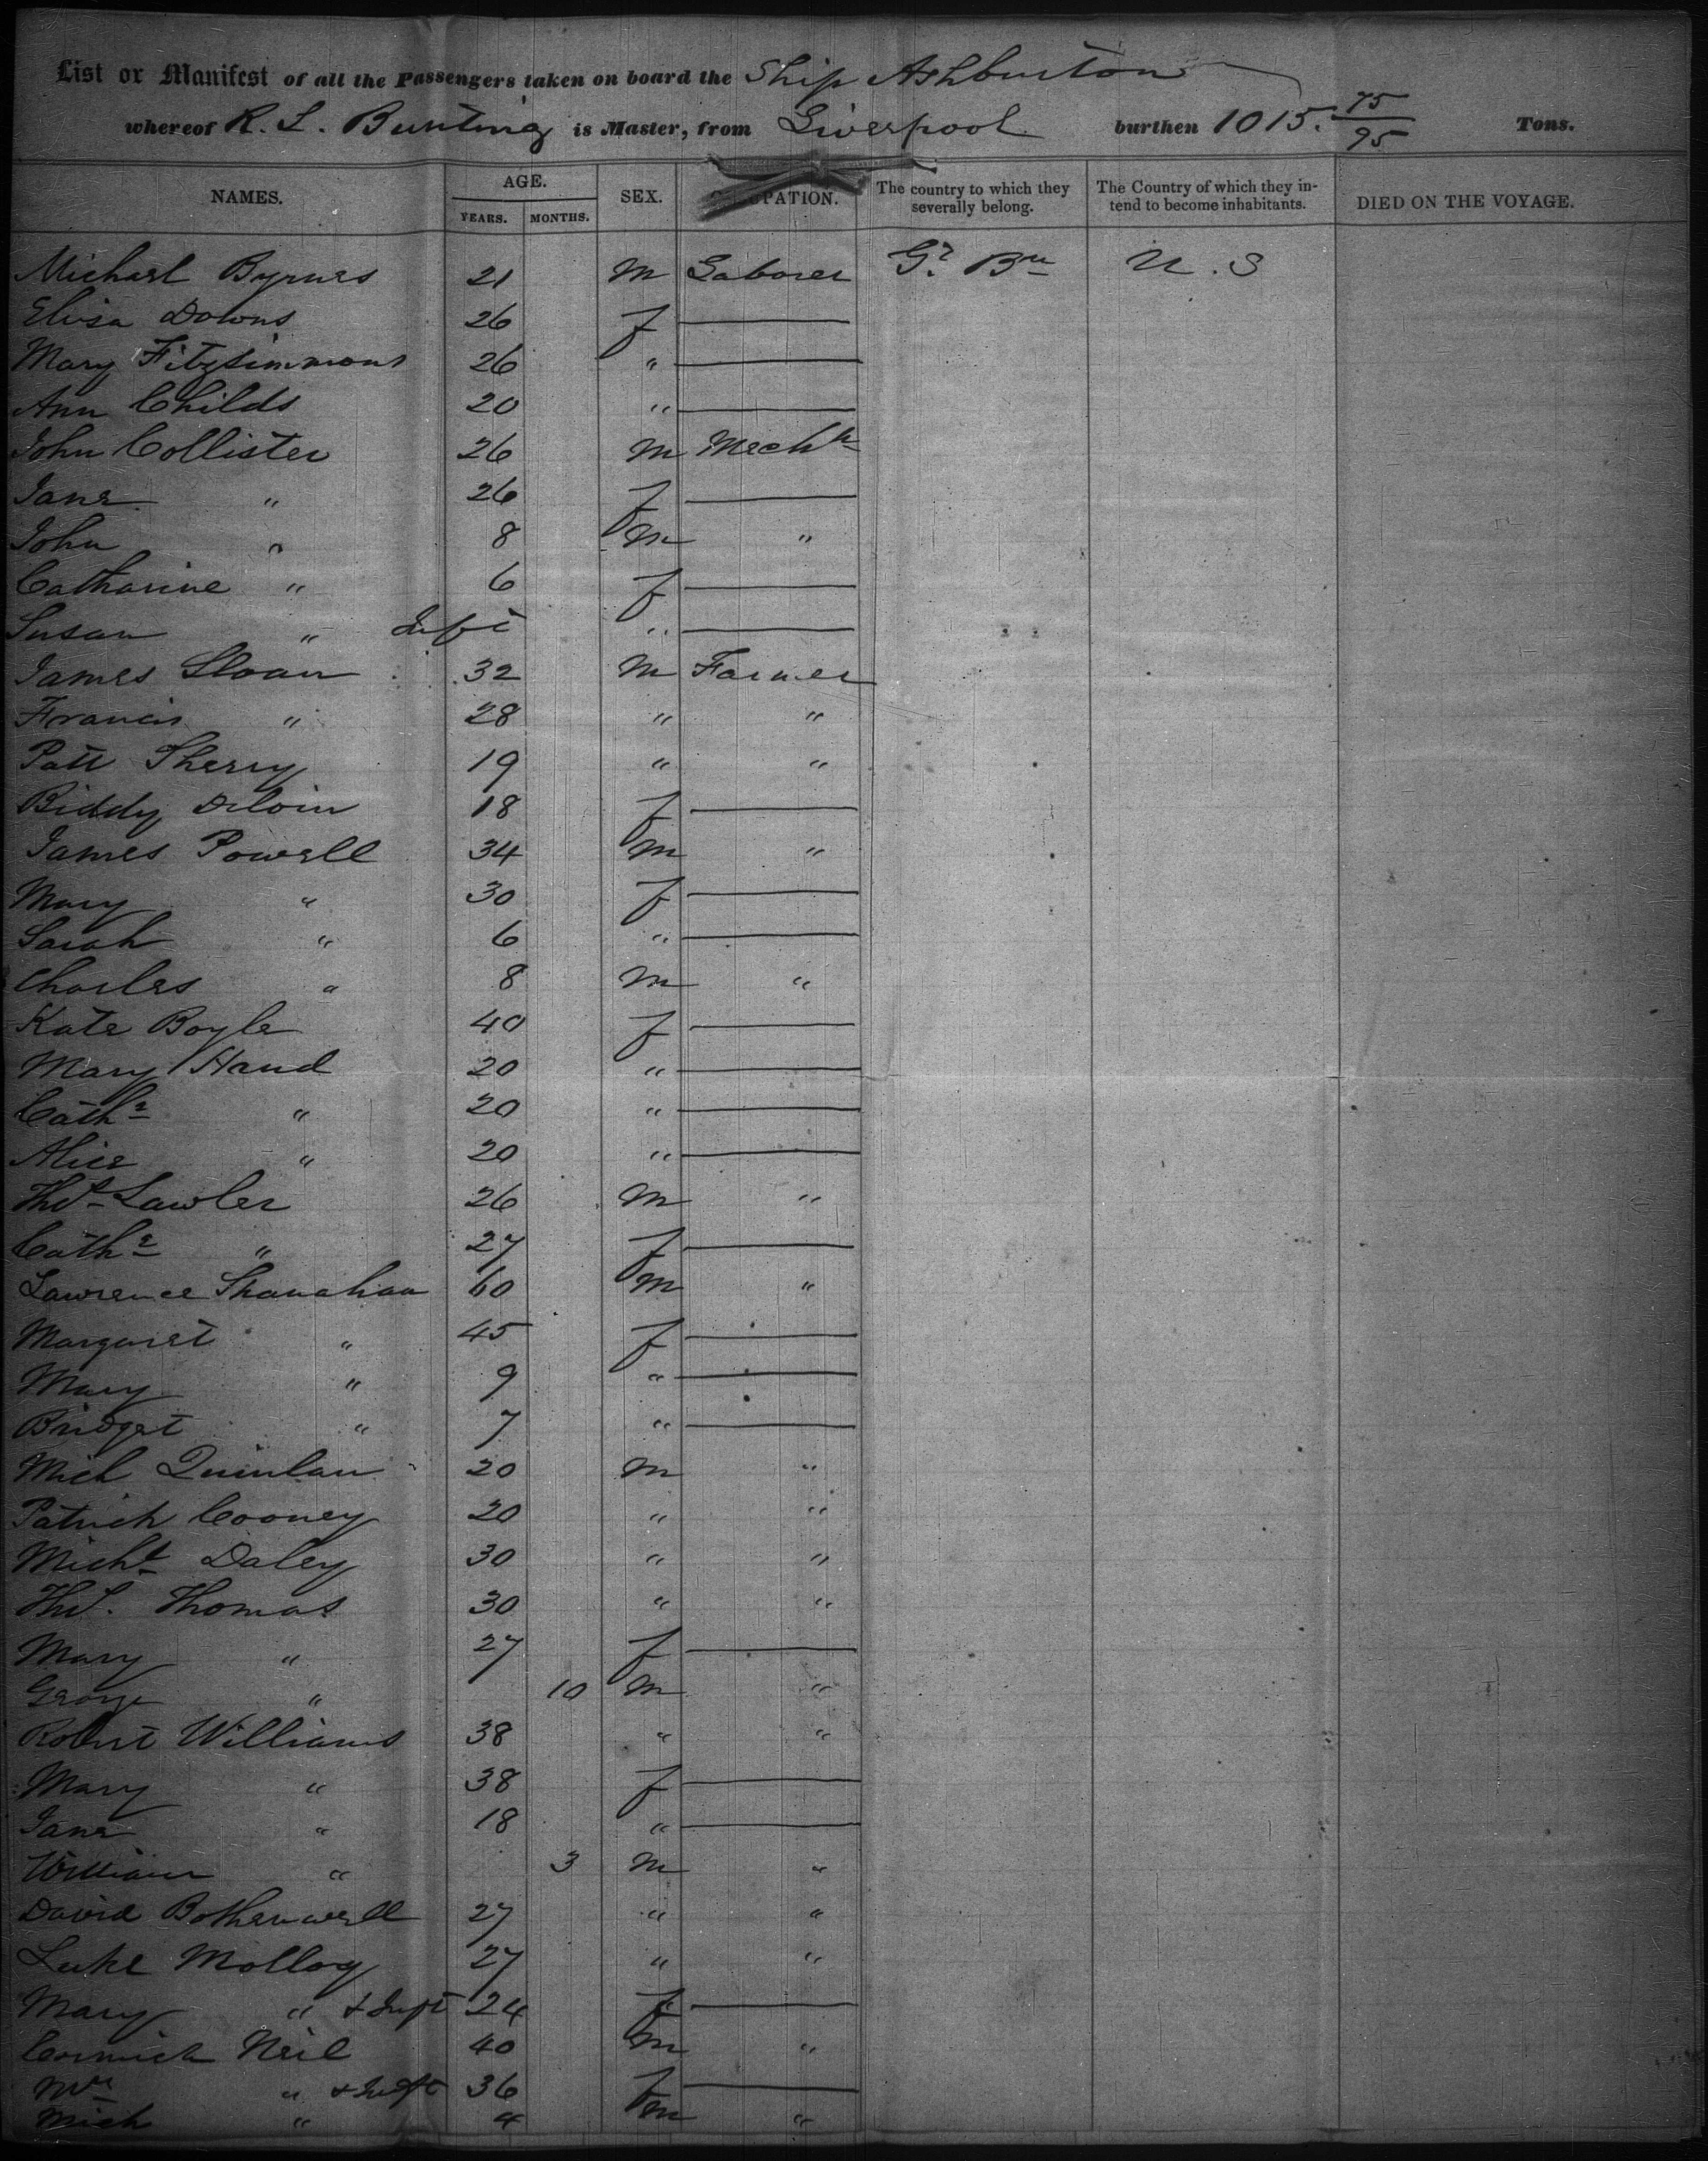 List or Manifest of all the Passengers taken on board the Ship Ashburton
whereof R. L. Bunting is Master, from Liverpool burthen 1015. 75/95 Tons.
NAMES. AGE. YEARS. MONTHS. SEX. OCCUPATION. The country to which they severally belong. The Country of which they intend to become inhabitants. DIED ON THE VOYAGE.
Michael Byrnes 21 M Laborer Gt Bn U. S
Eliza Downs 26 f —
Mary Fitzsimmons 26 " —
Ann Childs 20 " —
John Collister 26 M Mechc
Jane " 26 f —
John " 8 M "
Catharine " 6 f —
Susan " Inft " —
James Sloan 32 M Farmer
Francis " 28 " "
Patt Sherry 19 " "
Biddy 18 f —
James Powell 34 M "
Mary " 30 f —
Sarah " 6 " —
Charles " 8 M "
Kate Boyle 40 f —
Mary Hand 20 " —
Cathe " 20 " —
Alice " 20 " —
Thos Lawler 26 M "
Cathe " 27 f —
Lawrence Shanahan 60 M "
Margaret " 45 f —
Mary " 9 " —
Bridget " 7 " —
Mich Quinlan 20 M "
Patrick Cooney 20 " "
Michl Daley 30 " "
Thos. Thomas 30 " "
Mary " 27 f —
George " 10 M "
Robert Williams 38 " "
Mary " 38 f —
Jane " 18 " —
William " 3 M "
David Bothenwell 27 " "
Luke Molloy 27 " "
Mary " & Inft 24 f —
Cormick Neil 40 M "
Mrs " & Inft 36 f —
Mich " 4 M "